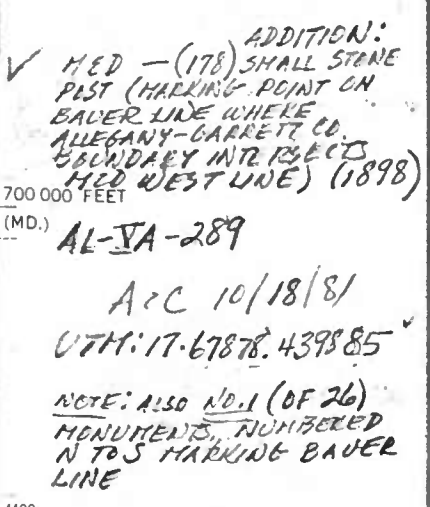 ADDITION:
✓ MED - (178) SMALL STONE
POST (MARKING POINT ON
BAUER LINE WHERE
ALLEGANY-GARRETT CO.
BOUNDARY INTERSECTS
WEST LINE) (1898)
700 000 FEET
(MD.)
AL-VA-289
A&C 10/18/81
UTM: 17.67878.439885 ✓
NOTE: ALSO NO. 1 (OF 26)
MONUMENTS, NUMBERED
N TO S MARKING BAUER
LINE